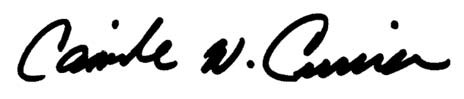 Camille W. Currier